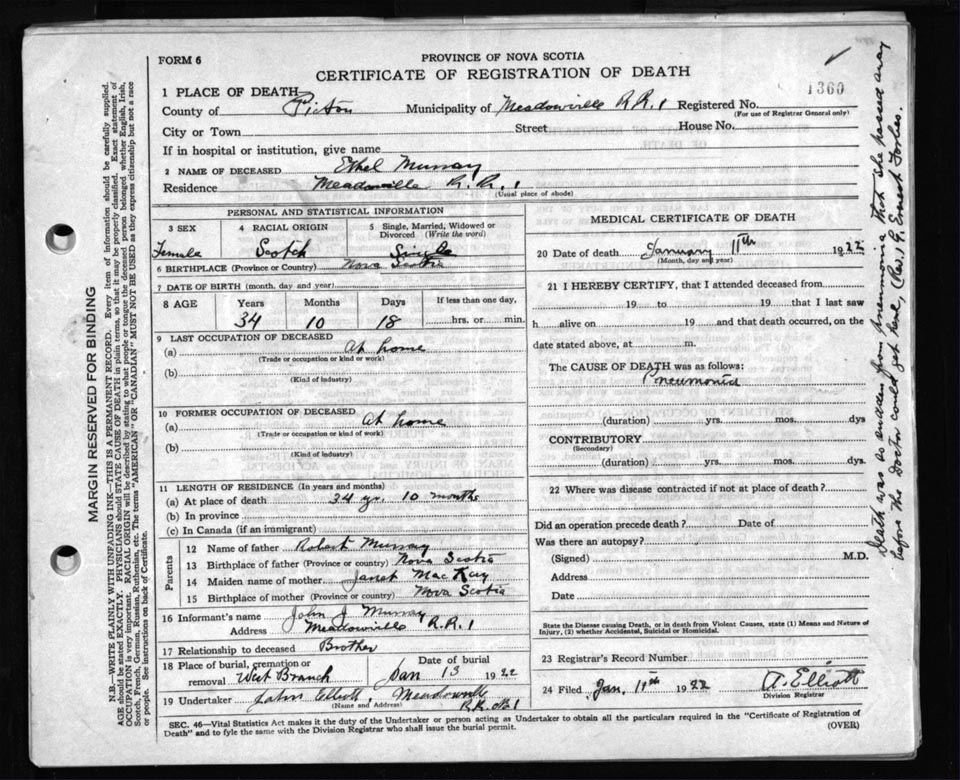 FORM 6
PROVINCE OF NOVA SCOTIA
CERTIFICATE OF REGISTRATION OF DEATH
1360
1 PLACE OF DEATH
County of Pictou Municipality of Meadowville R.R.1 Registered No.
(For use of Registrar General only)
City or Town Street House No.
If in hospital or institution, give name
2 NAME OF DECEASED Ethel Murray
Residence Meadowville R.R.1
(Usual place of abode)
PERSONAL AND STATISTICAL INFORMATION
3 SEX 4 RACIAL ORIGIN 5 Single, Married, Widowed or Divorced (Write the word)
Female Scotch Single
6 BIRTHPLACE (Province or Country) Nova Scotia
7 DATE OF BIRTH (month, day and year)
8 AGE Years Months Days If less than one day,
34 10 18 hrs. or min.
9 LAST OCCUPATION OF DECEASED
(a) At home
(Trade or occupation or kind of work)
(b)
(Kind of industry)
10 FORMER OCCUPATION OF DECEASED
(a) At home
(Trade or occupation or kind of work)
(b)
(Kind of industry)
11 LENGTH OF RESIDENCE (In years and months)
(a) At place of death 34 yr. 10 months
(b) In province
(c) In Canada (if an immigrant)
Parents
12 Name of father Robert Murray
13 Birthplace of father (Province or country) Nova Scotia
14 Maiden name of mother Janet MacKay
15 Birthplace of mother (Province or country) Nova Scotia
16 Informant's name John J Murray
Address Meadowville R.R.1
17 Relationship to deceased Brother
18 Place of burial, cremation or removal West Branch Date of burial Jan 13 1922
19 Undertaker John Elliott Meadowville
(Name and Address) R.R. No 1
MEDICAL CERTIFICATE OF DEATH
20 Date of death January 11th 1922
(Month, day and year)
21 I HEREBY CERTIFY, that I attended deceased from
19 to 19 that I last saw
h alive on 19 and that death occurred, on the
date stated above, at m.
The CAUSE OF DEATH was as follows:
Pneumonia
(duration) yrs. mos. dys
CONTRIBUTORY
(Secondary)
(duration) yrs. mos. dys.
22 Where was disease contracted if not at place of death?
Did an operation precede death? Date of
Was there an autopsy?
(Signed) M.D.
Address
Date
State the Disease causing Death, or in death from Violent Causes, state (1) Means and Nature of
Injury, (2) whether Accidental, Suicidal or Homicidal.
23 Registrar's Record Number
24 Filed Jan. 19th 1922 A. Elliott
Division Registrar
SEC. 46—Vital Statistics Act makes it the duty of the Undertaker or person acting as Undertaker to obtain all the particulars required in the "Certificate of Registration of
Death" and to fyle the same with the Division Registrar who shall issue the burial permit. (OVER)
MARGIN RESERVED FOR BINDING
N.B.—WRITE PLAINLY WITH UNFADING INK—THIS IS A PERMANENT RECORD. Every item of information should be carefully supplied.
AGE should be stated EXACTLY. PHYSICIANS should STATE CAUSE OF DEATH in plain terms, so that it may be properly classified. Exact statement of
OCCUPATION is very important. RACIAL ORIGIN will be described by stating to what people or tongue the deceased person belonged whether English, Irish,
Scotch, French, German, Russian, Ruthenian, etc. The terms "AMERICAN" OR "CANADIAN" MUST NOT BE USED as they express citizenship but not a race
or people. See instructions on back of Certificate.
Death was so sudden from pneumonia that she passed away
before the doctor could get here, (Rev. G. Ernest Forbes.